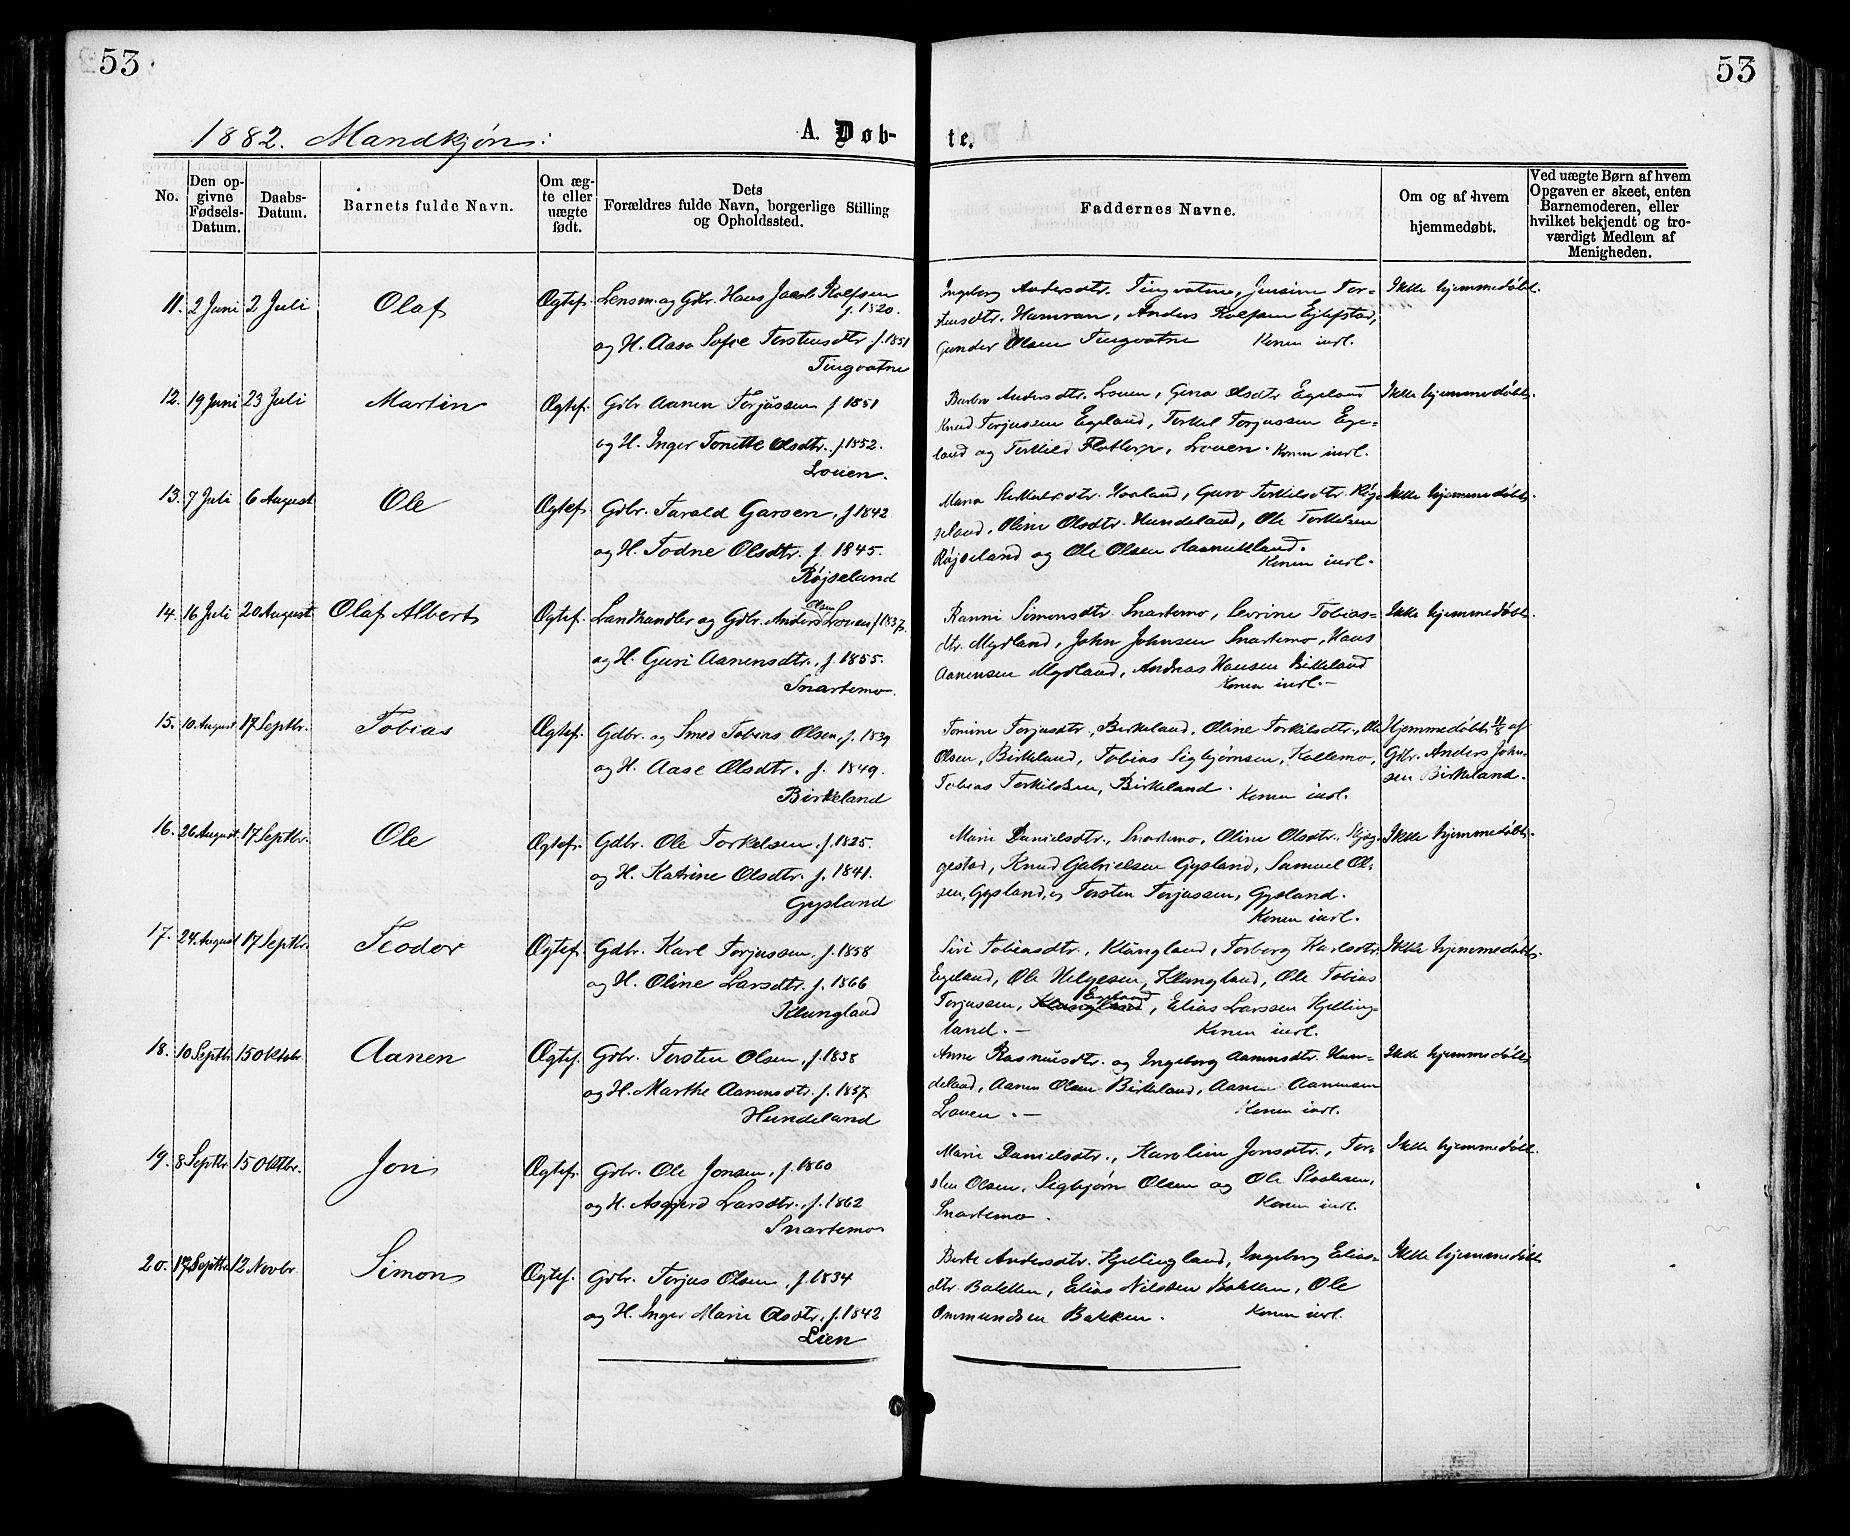 53
53
1882. Mandkjøn:
A. Døb-
te.
No.
Den op-
givne
Fødsels-
Datum.
Daabs-
Datum.
Barnets fulde Navn.
Om æg-
te eller
uægte
født.
Dets
Forældres fulde Navn, borgerlige Stilling
og Opholdssted.
Faddernes Navne.
Om og af hvem
hjemmedøbt.
Ved uægte Børn af hvem
Opgaven er skeet, enten
Barnemoderen, eller
hvilket bekjendt og tro-
værdigt Medlem af
Menigheden.
11. 2 Juni 2 Juli Olaf Ægtef. Lensm. og Gdbr. Hans Jacob Rolfsen
f. 1820.
og H. Aasa Sofie Torstensdtr f. 1851
Tingvatne
Ingeborg Andersdtr. Tingvatne, Jensine Tor-
stensdtr. Hamran, Anders Rolfsen Eftestad,
Gunder Olsen Tingvatne Konen indl.
Ikke hjemmedøbt.
12. 19 Juni 23 Juli Martin Ægtef. Gdbr Aanen Torjussen f 1851
og H. Inger Tonette Olsdtr. f. 1852.
Louen.
Barbro Andersdtr. Louen, Gina Olsdtr Egeland
Knud Torjussen Egeland, Torkel Torjussen Ege-
land og Torkild Flottorp, Louen. Konen indl.
Ikke hjemmedøbt.
13. 7 Juli 6 August Ole Ægtef. Gdbr. Tarald Garsen, f 1842
og H. Todne Olsdtr. f. 1845.
Røjseland
Maria Olsdtr. Haaland, Guro Torkilsdtr. Røj-
seland, Oline Olsdtr. Hundeland, Ole Torkelsen
Røjseland og Ole Olsen
Konen indl.
Ikke hjemmedøbt.
14. 16 Juli 20 August Olaf Albert Ægtef. Landhandler og Gdbr. Anders Olsen Louen f 1837.
og H. Guri Aanensdtr. f. 1855.
Snartemo.
Ranni Simonsdtr Snartemo, Sevrine Tobias-
dtr. Mydland, John Johnsen Snartemo, Hans
Aanensen Mydland, Andreas Hansen Birkeland
Konen indl.
Ikke hjemmedøbt.
15. 10 August 17 Septbr. Tobias Ægtef. Gdbr. og Smed Tobias Olsen, f. 1839
og H. Aase Olsdtr. f. 1849.
Birkeland
Tonine Torjusdtr, Birkeland, Oline Torkilsdtr., Ole
Olsen, Birkeland, Tobias Sigbjørnsen, Kollemo,
Tobias Torkildsen, Birkeland. Konen indl.
Hjemmedøbt 11/8 af
Gdbr. Anders John-
sen Birkeland.
16. 26 August 17 Septbr. Ole Ægtef. Gdbr. Ole Torkelsen. f. 1825.
og H. Katrine Olsdtr. f. 1841.
Gysland
Marie Danielsdtr., Snartemo, Oline Olsdtr. Skjeg-
gestad, Knud Gabrielsen Gysland, Samuel Ol-
sen, Gysland, og Torsten Torjussen, Gysland.
Konen indl.
Ikke hjemmedøbt.
17. 24 August 17 Septbr. Teodor Ægtef. Gdbr. Karl Torjussen, f. 1858
og H. Oline Larsdtr. f. 1866
Klungland
Siri Tobiasdtr., Klungland, Torborg Karlsdtr.
Egeland, Ole Helgesen, Klungland, Ole Tobias
Torjussen, Klungland Egeland, Elias Larssen Kjelling-
land. — Konen indl.
Ikke hjemmedøbt.
18. 10 Septbr 15 Oktobr Aanen Ægtef. Gdbr. Torsten Olsen, f. 1838
og H. Marthe Aanensdtr. f. 1857
Hundeland
Anne Rasmusdtr. og Ingeborg Aanensdtr. Hun-
deland, Aanen Olsen Birkeland, Aanen Aanensen
Louen. — Konen indl.
Ikke hjemmedøbt
19. 8 Septbr 15 Oktbr. Jon Ægtef. Gdbr. Ole Jonsen, f. 1860
og H. Asgjerd Larsdtr. f. 1862
Snartemo
Marie Danielsdtr., Karoline Jonsdtr., Tor-
sten Olsen, Sigbjørn Olsen og Ole
Snartemo. Konen indl.
Ikke hjemmedøbt.
20. 17 Septbr 12 Novbr. Simon Ægtef. Gdbr. Torjus Olsen, f. 1834
og H. Inger Marie Olsdtr. f. 1842
Lien
Berte Andersdtr. Kjellingland, Ingeborg Elias-
dtr. Bakken, Elias Nilssen Bakken, Ole
Ommundsen Bakken. Konen indl.
Ikke hjemmedøbt